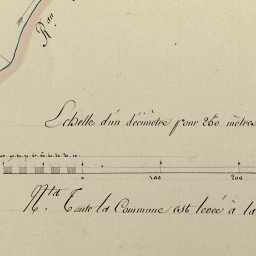 R.au
Echelle d'un décimètre pour 250 mètres
0 100 200
N.ta Toute la Commune est levée à la